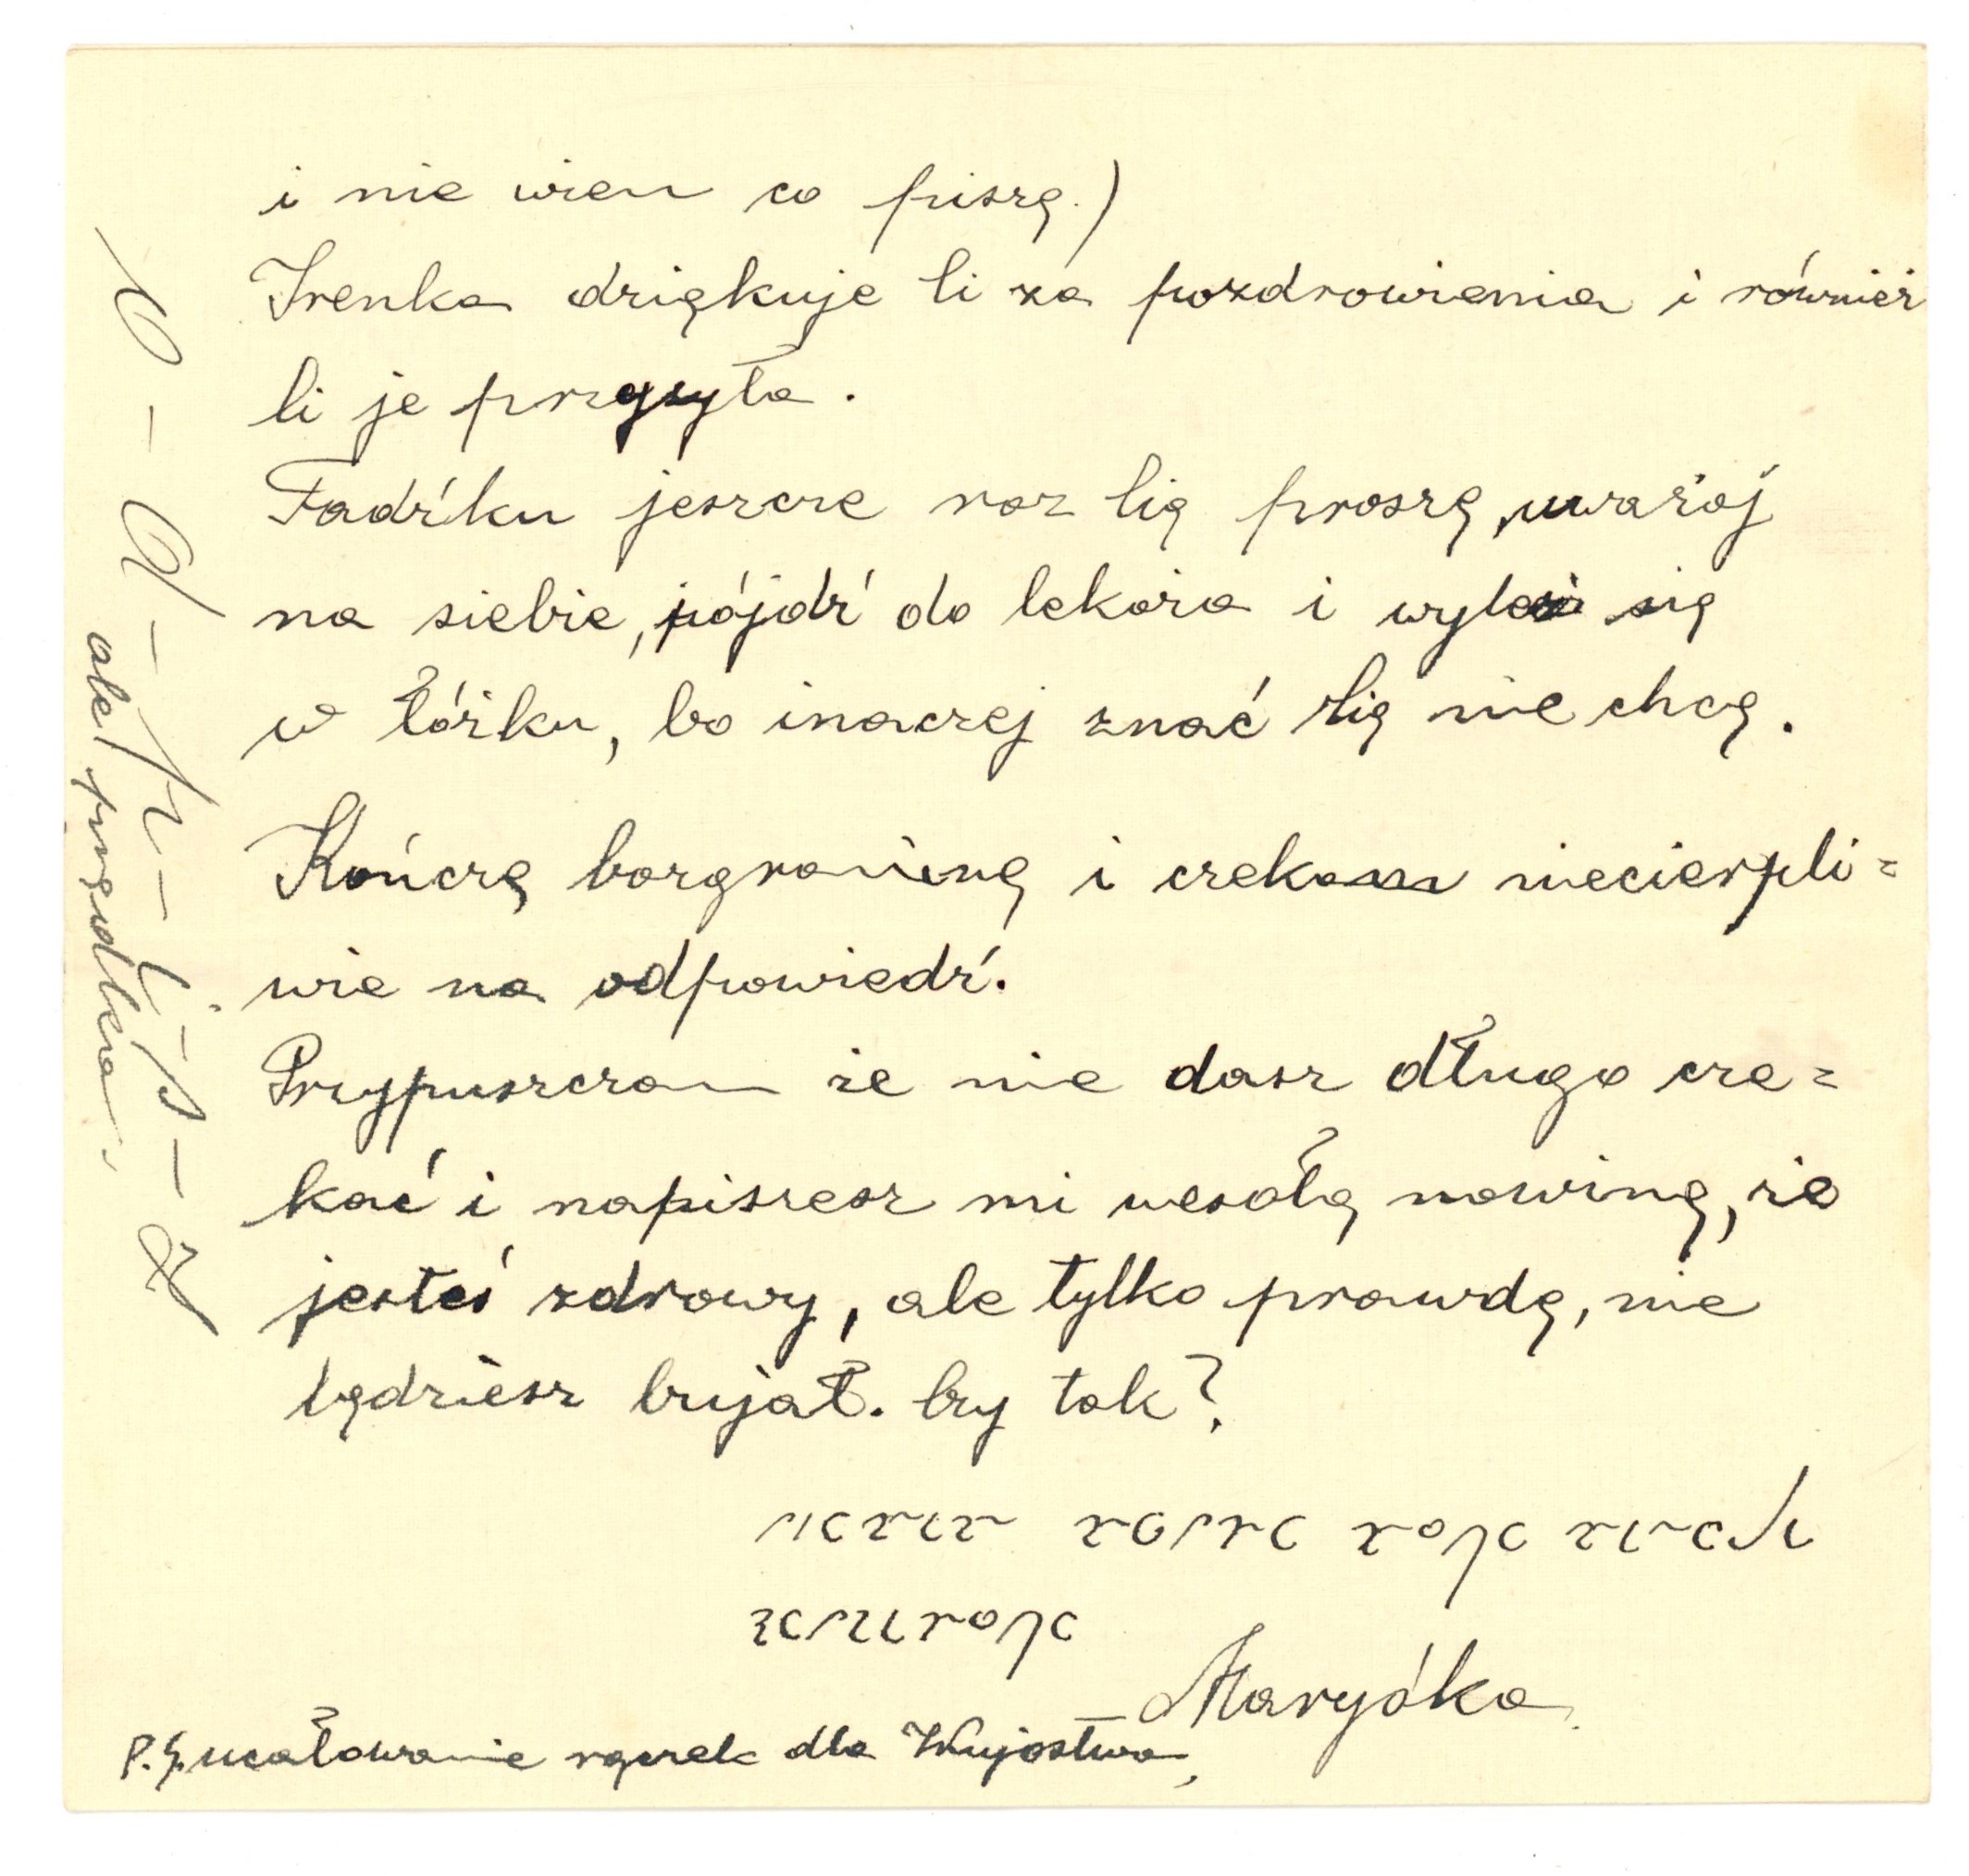 i nie wiem co piszę.)
Irenka dziękuje Ci za pozdrowienia i również
Ci je przysyła.
Tadźku jeszcze raz Cię proszę, uważaj
na siebie, pójdź do lekarza i wyleż się
w łóżku, bo inaczej znać Cię nie chcę.
Kończę bazgraninę i czekam niecierpli=
wie na odpowiedź.
Przypuszczam że nie dasz długo cze=
kać i napiszesz mi wesołą nowinę, że
jesteś zdrowy, ale tylko prawdę, nie
będziesz bujał. Czy tak?
Maryśka
P.S. ucałowanie rączek dla Wujostwa,
O-d-p-i-s-z
ale prędko.